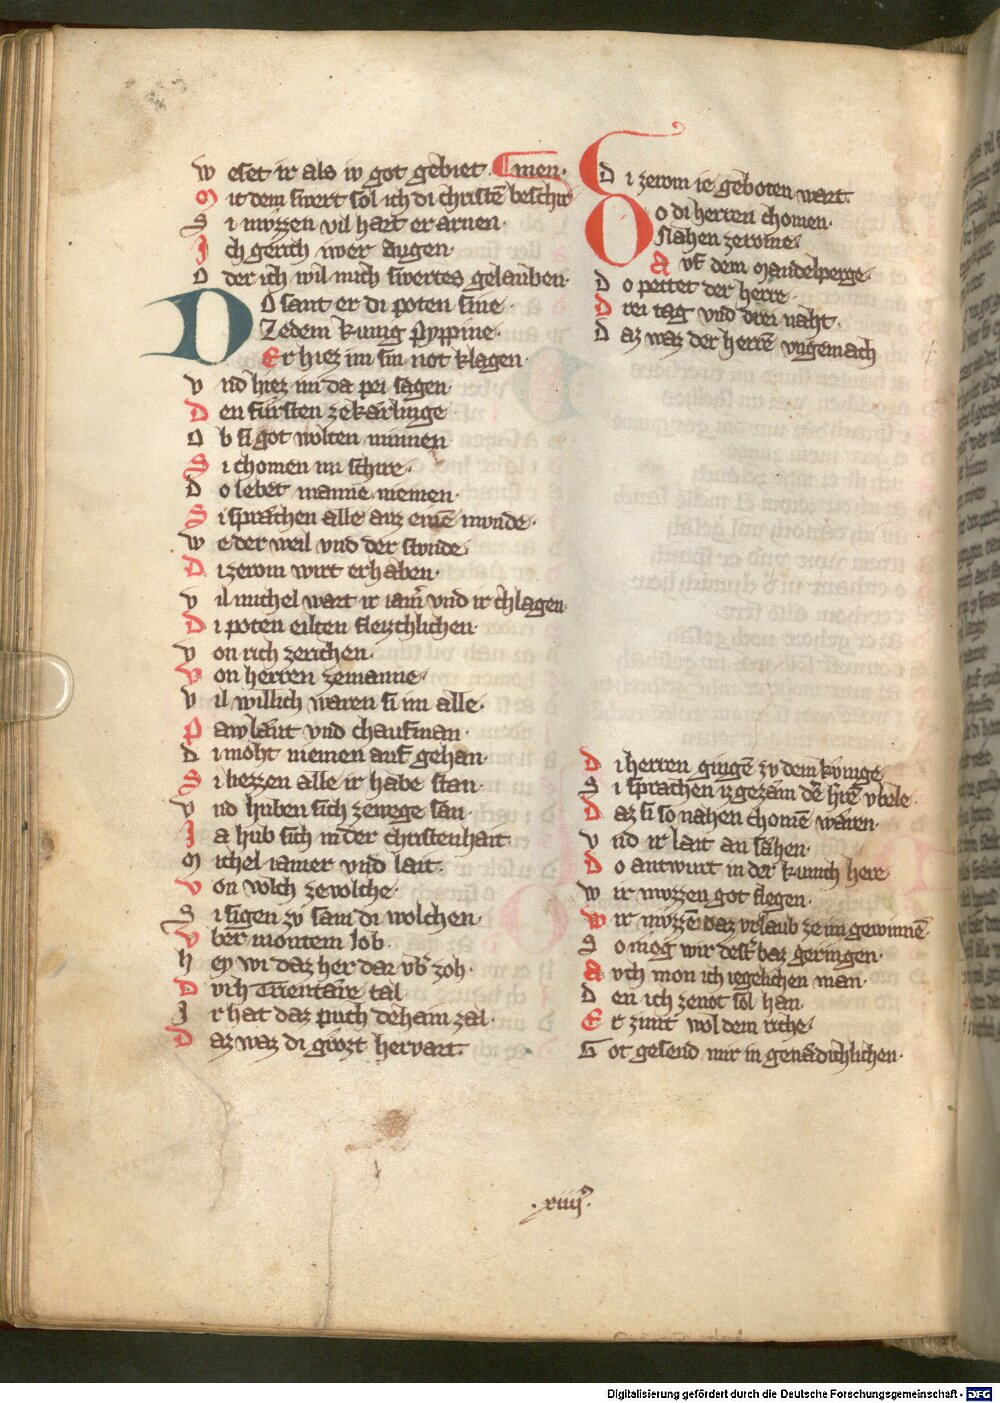 w eset ir als iv got gebiet. men.
M it dem swert sol ich di christē beschir
S i mvͦzzen vil hart er arnen.
J ch gerich iwer augen.
O der ich wil mich swertes gelauben.
DO sant er di poten sine.
Zedem kunig Pyppine.
Er hiez im sin not klagen.
v nd hiez im da pei sagen
D en fürsten ze kärlinge
O b si got wolten minnen
S i chomen im schire.
D o lebet manne niemen.
S i sprachen alle auz einē mvnde.
w e der weil vnd der stvnde
D i zerom wirt erhaben.
v il michel wart ir iam̄ vnd ir chlagen.
D i poten eilten fleizchlichen.
v on rich zerichen.
v on herren zemanne.
v il willich waren si im alle.
P awlaͤut vnd chaufman.
D i moht niemen auf gehan.
S i liezzen alle ir habe stan.
v nd huben sich zewege san.
J a hub sich in der christenhait
M ichel iamer vnd lait.
v on volch ze volche.
S i sigen zv sam di wolchen.
v ber montem Job.
h ey wi daz her dar vb̄ zoh.
D vrh Trientaͤre tal
J r hat daz puch dehain zal.
D az waz di grözt hervart.
D i zerom ie geboten wart.
DO di herren chomen.
Nahen zerome.
A vf dem Mandelperge.
D o pettet der herre.
D rei tag vnd drei naht.
D az waz der herrē vngemach
D i herren gingē zv dem kvnige
S i sprachen iz gezäm dē h're vbele.
D az si so nahen chomē wären.
v nd ir lait an sähen.
D o antwurt in der kunich here
w ir mvzzen got flegen.
w ir mvͦzzē daz vrlaub ze im gewinnē
S o mög wir dest' baz geringen.
A vch mon ich iegelichen man.
D en ich zenot sol han.
E r zimt wol dem riche.
G ot gesend mir in genädichlichen.
.xiiij⁹.
Digitalisierung gefördert durch die Deutsche Forschungsgemeinschaft - DFG